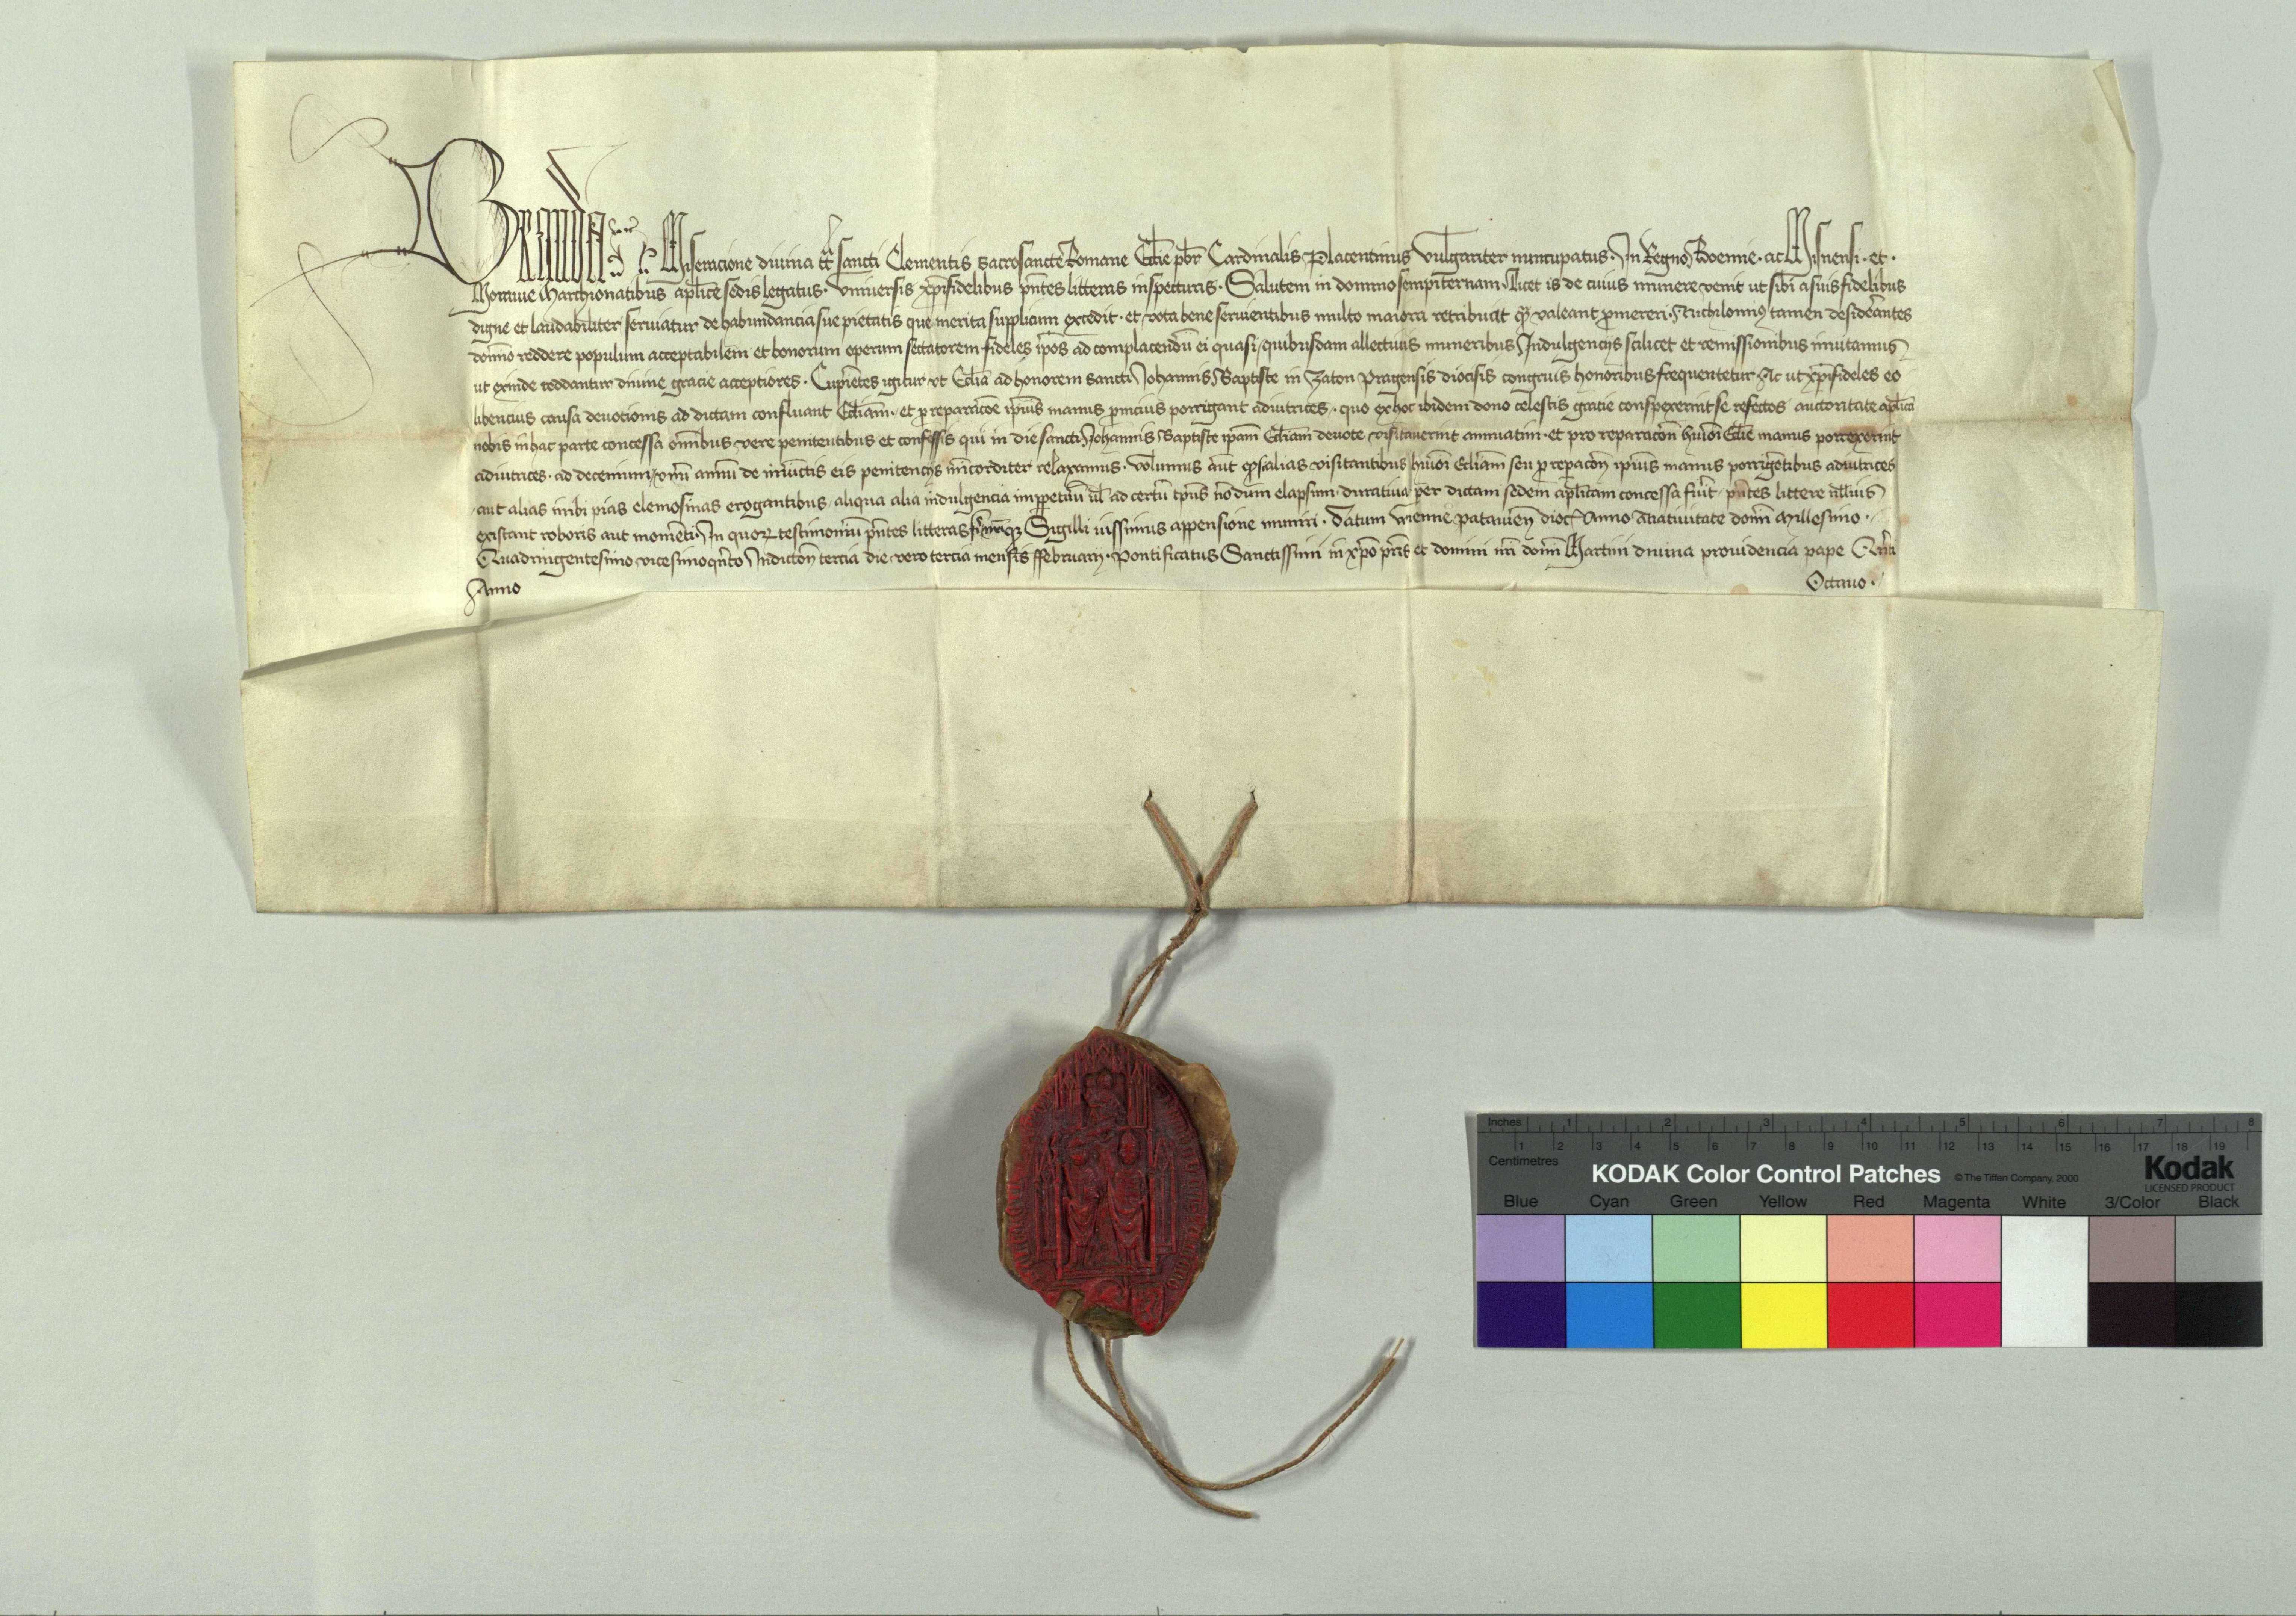 Branda Miseracione divina tt̄ sancti Clementis sacrosancte Romane Ecclīe pbr̄ Cardinalis Placentinus vulgariter nuncupatus. In Regno Boemie. ac Misnensi. et.
Moravie Marchionatibus aplīce sedis legatus. Universis xp̄ifidelibus pn̄tes litteras inspecturis. Salutem in domino sempiternam. Licet is de cuius munere venit ut sibi a suis fidelibus
digne et laudabiliter serviatur de habundancia sue pietatis que merita supplicum excedit. et vota bene servientibus multo maiora retribuat qz valeant p̄mereri. Nichilominꝰ tamen desiderantes
domīo reddere populum acceptabilem et bonorum operum sectatorem fideles ip̄os ad complacendū ei quasi quibusdam allectivis muneribus Indulgencijs scilicet et remissionibus invitamus
ut exinde reddantur divine gracie acceptiores. Cupientes igitur ut Ecclīa ad honorem sancti Johannis Baptiste in Zaton Pragensis diocisis congruis honoribus frequentetur Ac ut xp̄ifideles eo
libencius causa devotionis ad dictam confluant Ecclīam. et p reparacōe ipīus manus p̄mcius porrigant adiutrices. quo ex hoc ibidem dono celestis gracie conspexerint se refectos auctoritate aplīca
nobis in hac parte concessa om̄ibus vere penitentibus et confessis qui in die sancti Johannis Baptiste ip̄am Ecclīam devote visitaverint annuatim. et pro reparacōn huiōi Ecclīe manus porrexerint
adiutrices. ad decennium unū annū de iniūctis eis penitencijs mīcorditer relaxamus. Volumus aūt qz si alias visitantibus huiōi Ecclīam seu p repacōn ipīus manus porrigētibus adiutrices
aut alias inibi pias elemosinas erogantibus aliqua alia indulgencia imppetuū ul̄ ad certū tp̄us nōdum elapsum duratura per dictam sedem aplīcam concessa fuit̄ pn̄tes littere nullius
existant roboris aut momēti. In quorꝝ testimoniū pn̄tes litteras fieri nr̄iqz Sigilli iussimus appensione muniri. Datum Wienne patavien̄ dioc̄ Anno A Nativitate domī Millesimo.
Quadringentesimo vicesimoqn̄to Indictōn tercia die vero tercia mensis ffebruarij. Pontificatus Sanctissimi in xp̄o pr̄is et domini nr̄i domī Martini divina providencia pape Qn̄ti
Anno Octavo.
Inches 1 2 3 4 5 6 7 8
1 2 3 4 5 6 7 8 9 10 11 12 13 14 15 16 17 18 19
Centimetres
KODAK Color Control Patches © The Tiffen Company, 2000 Kodak
LICENSED PRODUCT
Blue Cyan Green Yellow Red Magenta White 3/Color Black